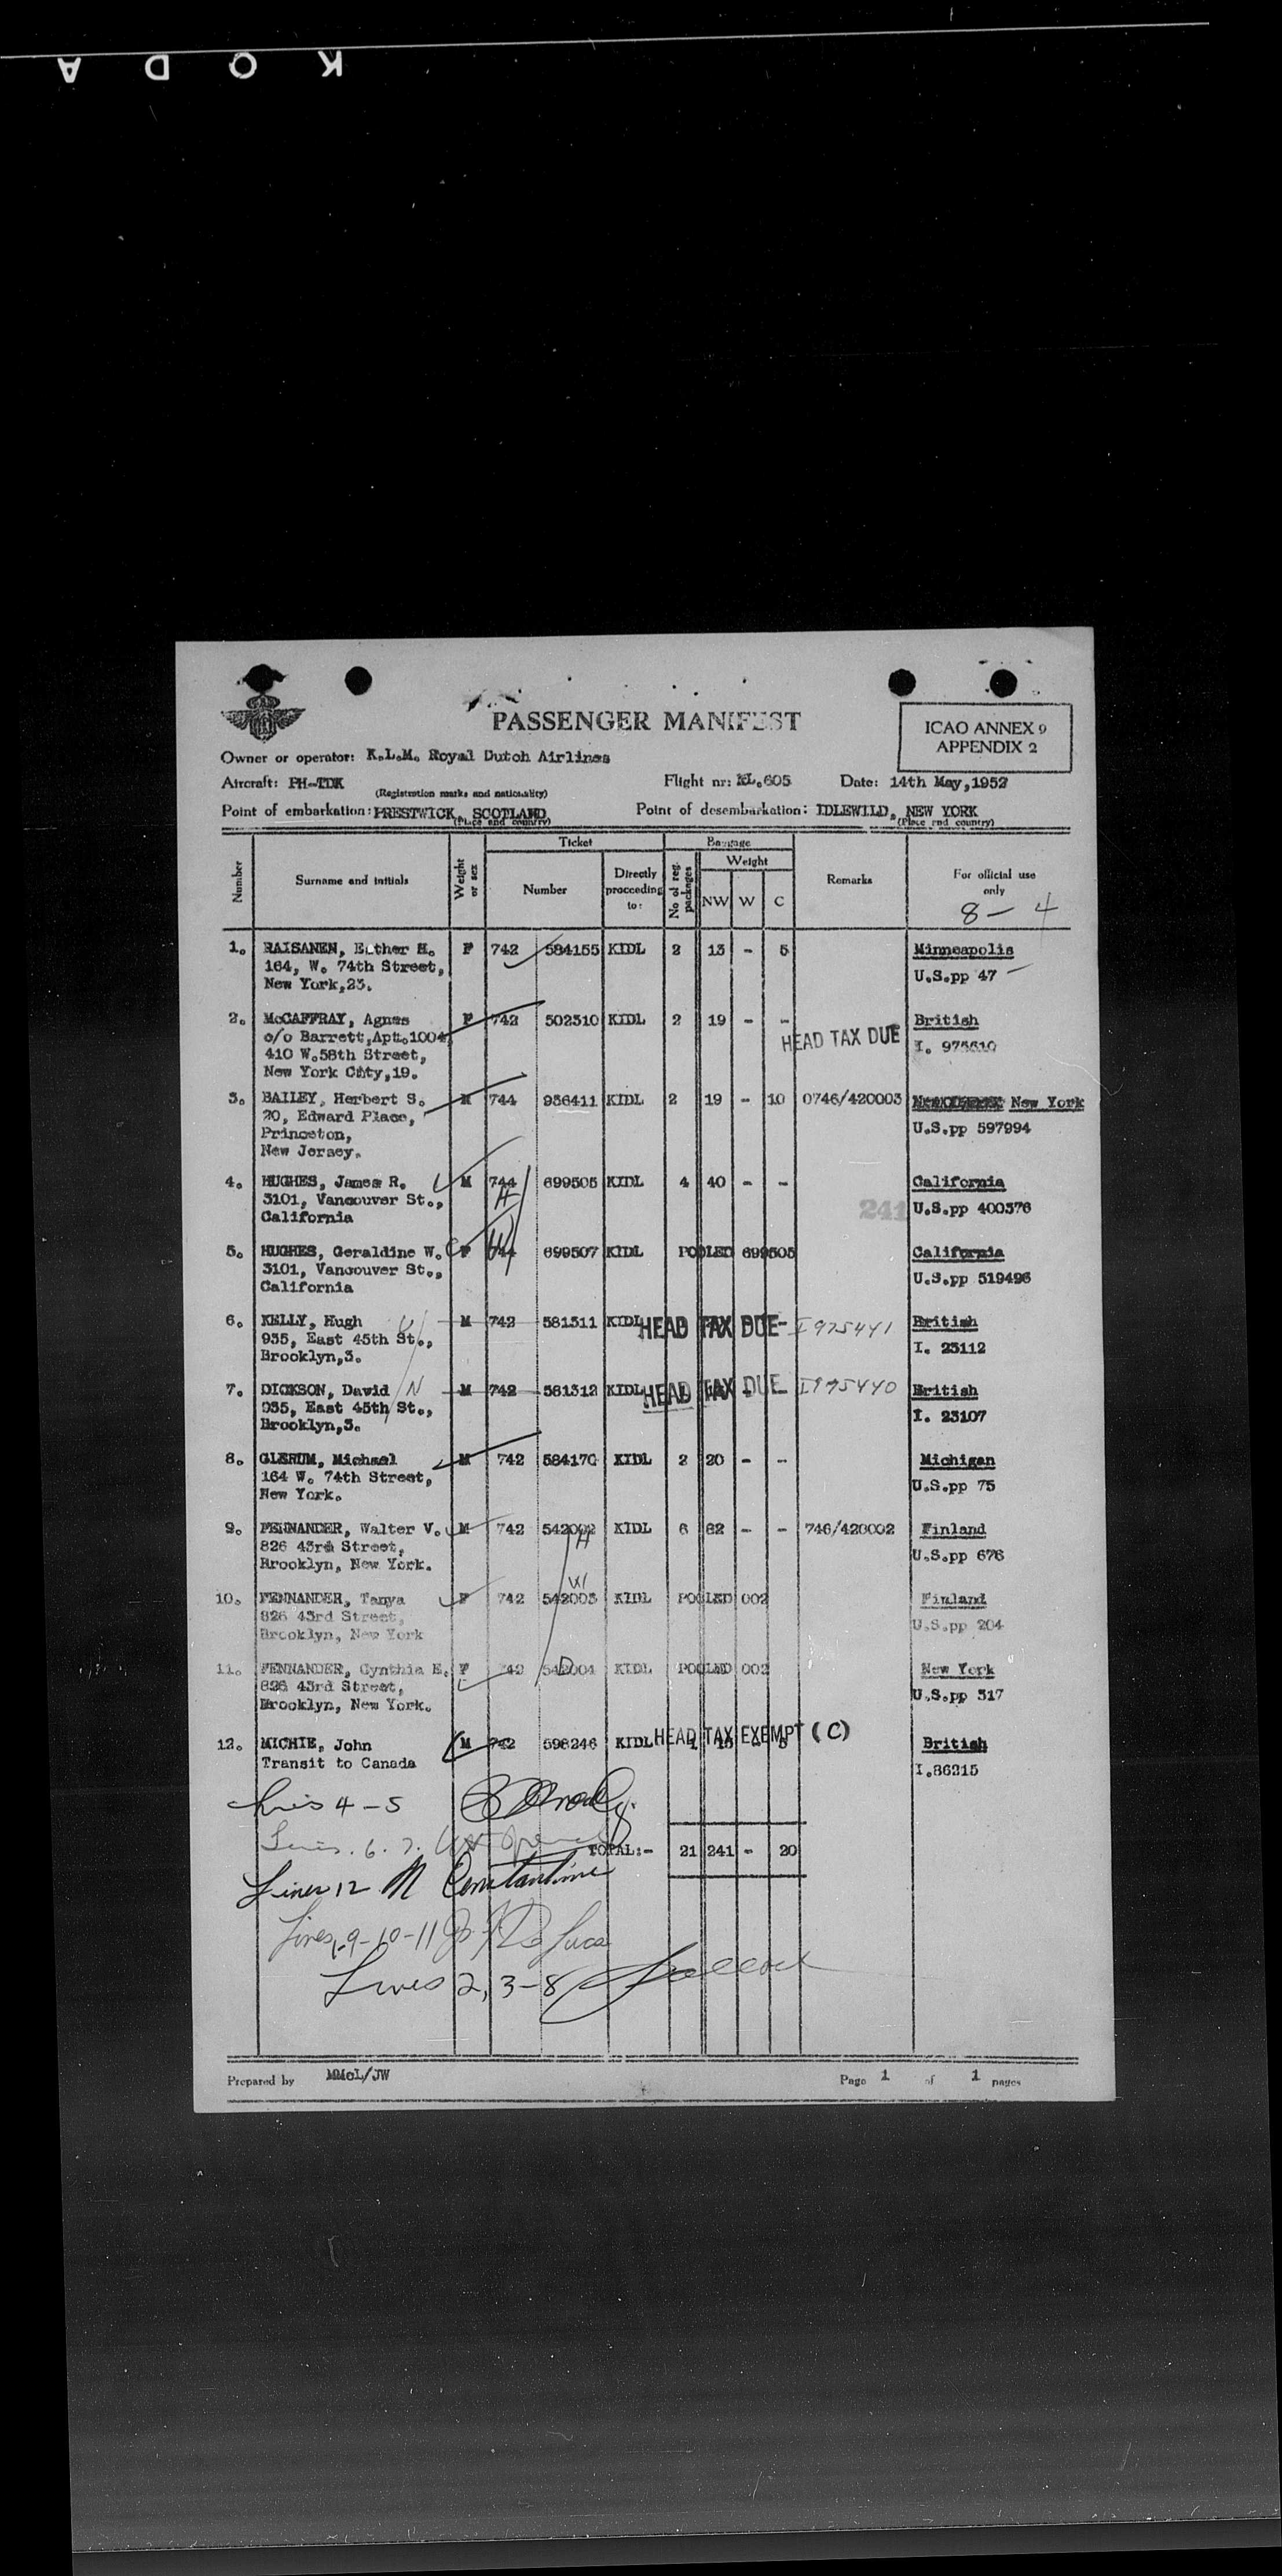 KODA
PASSENGER MANIFEST
ICAO ANNEX 9
APPENDIX 2
Owner or operator: K.L.M. Royal Dutch Airlines
Aircraft: PH-TDK Flight nr: KL.605 Date: 14th May,1952
(Registration marks and nationality)
Point of embarkation: PRESTWICK, SCOTLAND Point of desembarkation: IDLEWILD, NEW YORK
(Place and country) (Place and country)
Number Surname and initials Weight or sex Ticket Number Directly proceeding to: No of reg. packages Baggage Weight NW W C Remarks For official use only
8 - 4
1. RAISANEN, Esther H. F 742 584155 KIDL 2 13 - 5 Minneapolis
164, W. 74th Street, U.S.pp 47
New York,23.
2. McCAFFRAY, Agnes F 742 502310 KIDL 2 19 - - British
c/o Barrett,Apt.1004 HEAD TAX DUE I. 975610
410 W.58th Street,
New York City,19.
3. BAILEY, Herbert S. M 744 936411 KIDL 2 19 - 10 0746/420003 New York
20, Edward Place, U.S.pp 597994
Princeton,
New Jersey.
4. HUGHES, James R. M 744 699505 KIDL 4 40 - - California
3101, Vancouver St., H 241 U.S.pp 400376
California
5. HUGHES, Geraldine W. F 744 699507 KIDL POOLED 699505 California
3101, Vancouver St., W U.S.pp 519496
California
6. KELLY, Hugh M 742 581311 KIDL HEAD TAX DUE I 975441 British
935, East 45th St., I. 23112
Brooklyn,3.
7. DICKSON, David N M 742 581312 KIDL HEAD TAX DUE I975440 British
935, East 45th St., I. 23107
Brooklyn,3.
8. GLERUM, Michael M 742 584170 KIDL 2 20 - - Michigan
164 W. 74th Street, U.S.pp 75
New York.
9. FENNANDER, Walter V. M 742 542002 KIDL 6 82 - - 746/420002 Finland
826 43rd Street, H U.S.pp 676
Brooklyn, New York.
10. FENNANDER, Tanya F 742 542003 KIDL POOLED 002 Finland
826 43rd Street, W U.S.pp 204
Brooklyn, New York
11. FENNANDER, Cynthia E. F 742 542004 KIDL POOLED 002 New York
826 43rd Street, D U.S.pp 317
Brooklyn, New York.
12. MICHIE, John M 742 598246 KIDL HEAD TAX EXEMPT (C) British
Transit to Canada I.86215
4-5
Lines. 6. 7.
TOTAL:- 21 241 - 20
Lines 12 M Constantine
Lines 1-9-10-11 De Luca
Lines 2, 3-8
Prepared by MMcL/JW Page 1 of 1 pages